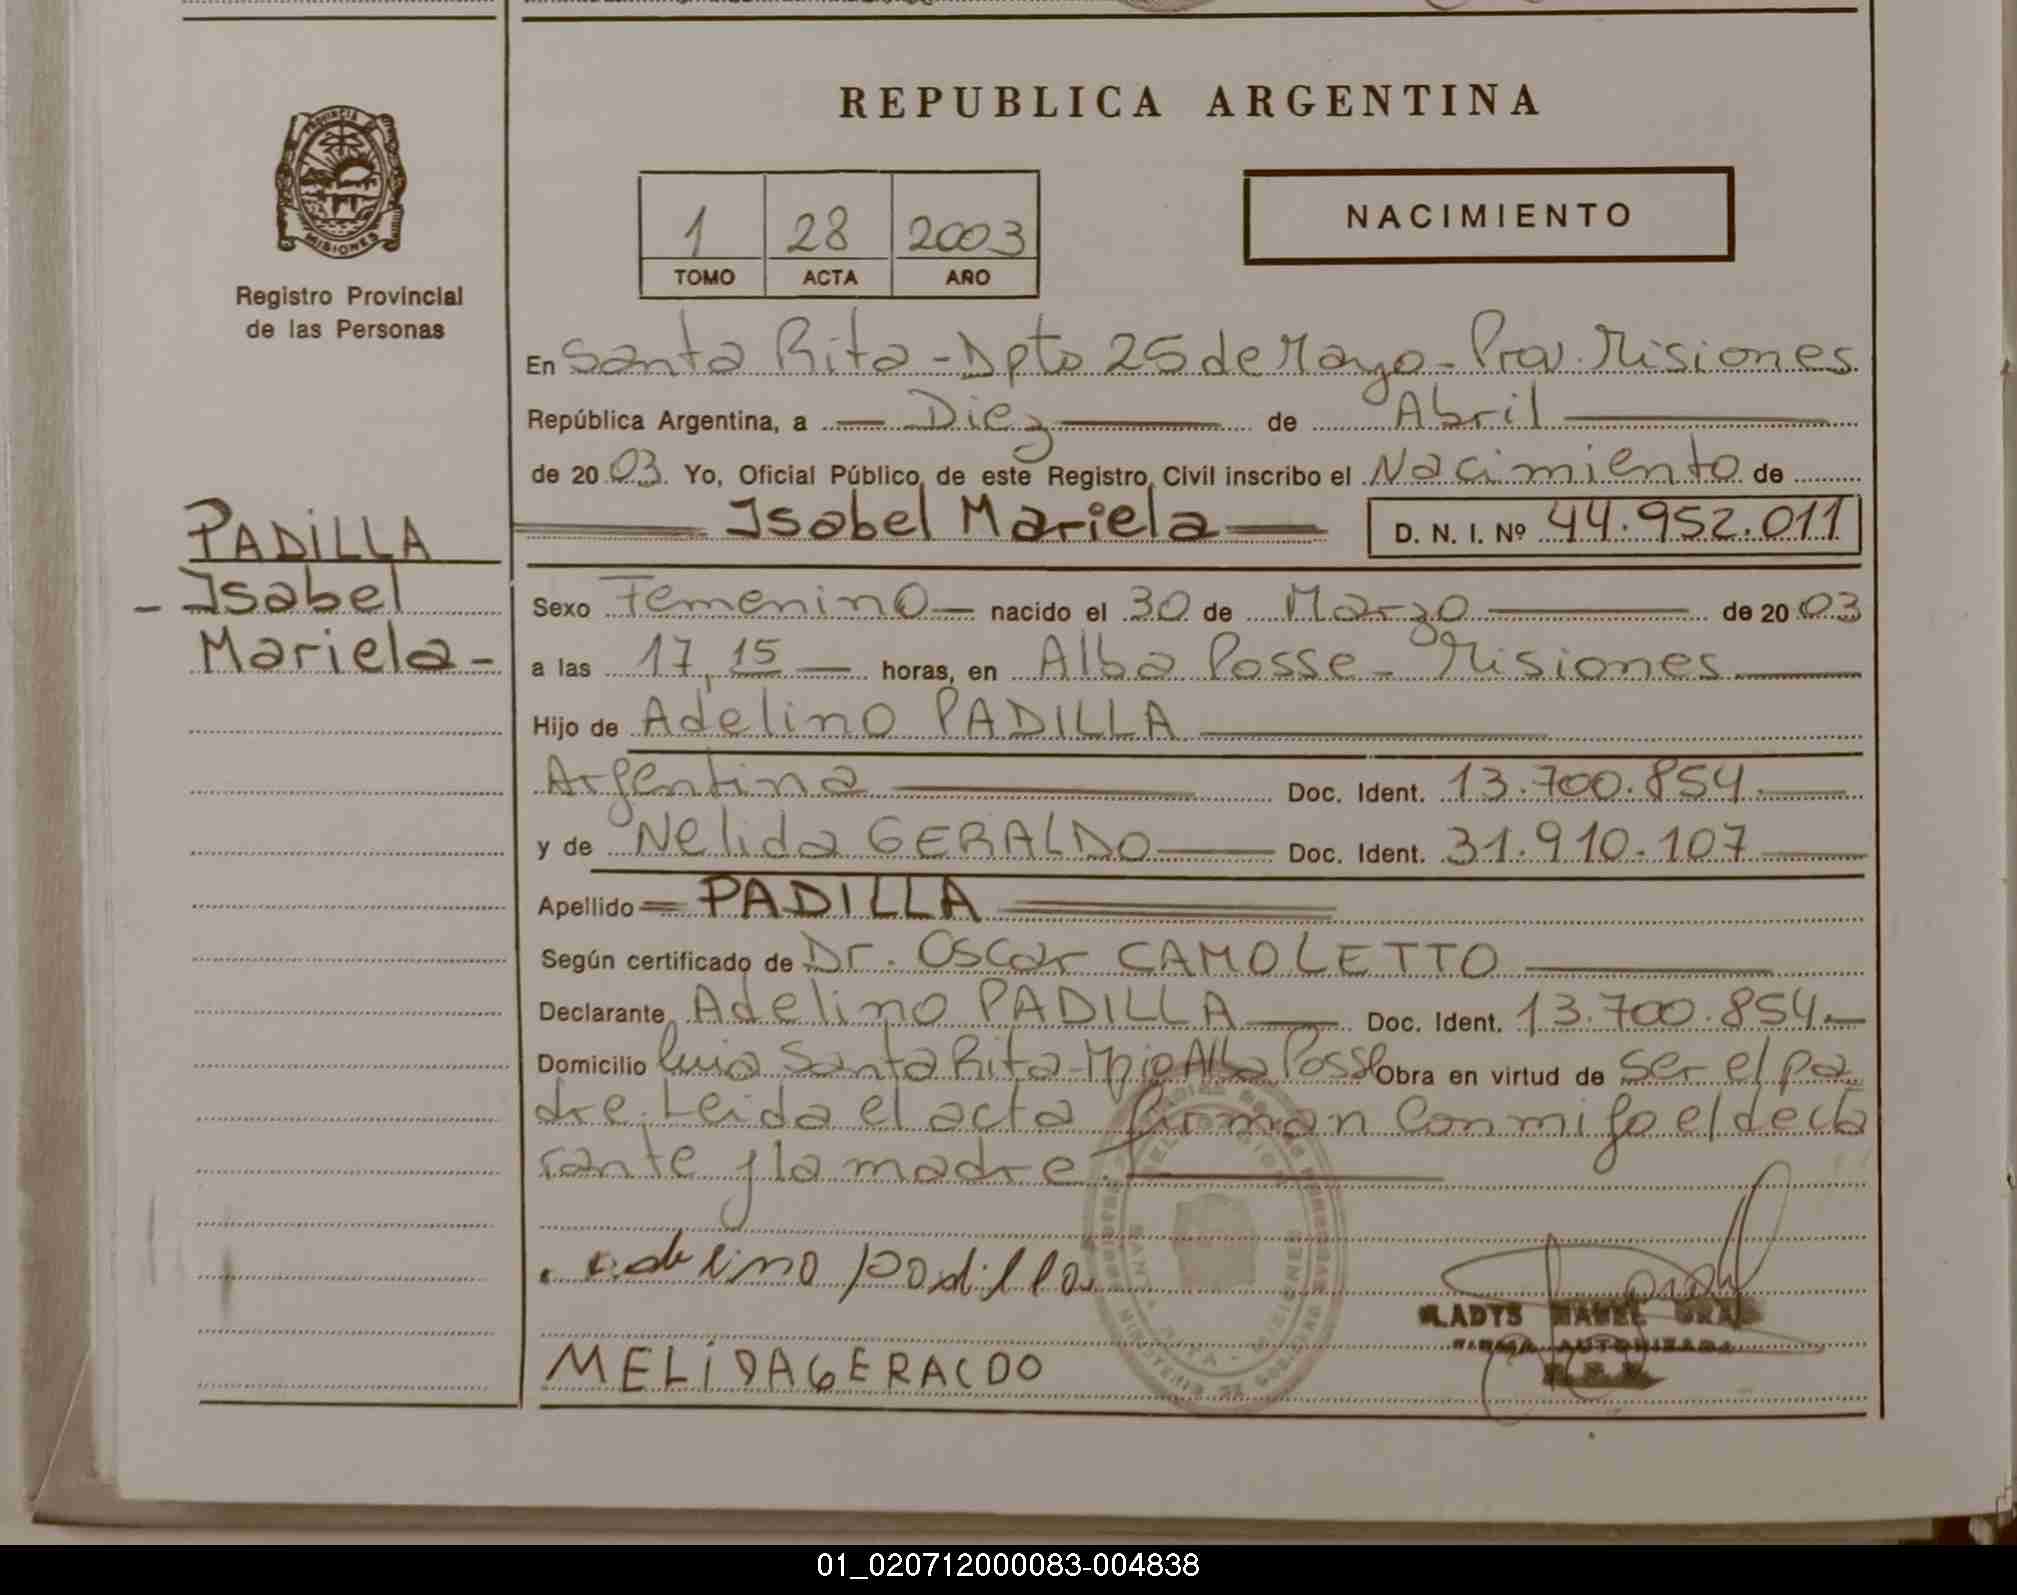 REPUBLICA ARGENTINA
PROVINCIA DE
MISIONES
Registro Provincial
de las Personas
1 28 2003
TOMO ACTA AÑO
NACIMIENTO
En Santa Rita - Dpto 25 de Mayo - Prov. Misiones
República Argentina, a Diez de Abril
de 2003. Yo, Oficial Público de este Registro Civil inscribo el Nacimiento de
Isabel Mariela D. N. I. Nº 44.952.011
PADILLA
- Isabel
Mariela -
Sexo Femenino nacido el 30 de Marzo de 2003
a las 17,15 horas, en Alba Posse - Misiones
Hijo de Adelino PADILLA
Argentina Doc. Ident. 13.700.854
y de Nelida GERALDO Doc. Ident. 31.910.107
Apellido PADILLA
Según certificado de Dr. Oscar CAMOLETTO
Declarante Adelino PADILLA Doc. Ident. 13.700.854.
Domicilio Santa Rita - Mpio Alba Posse Obra en virtud de ser el pa
dre. Leida el acta firman conmigo el decla
rante y la madre.
adelino padilla
MELIDA GERALDO
GLADYS
FIRMA AUTORIZADA
01_020712000083-004838